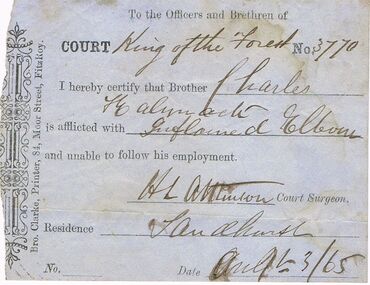 To the Officers and Brethren of
COURT King of the Forest No. 3770
I hereby certify that Brother Charles
is afflicted with Inflamed Elbow
and unable to follow his employment.
H L Atkinson Court Surgeon.
Residence Sandhurst
No. Date 3/65
Bro. Clarke, Printer, 84, Moor Street, Fitzroy.